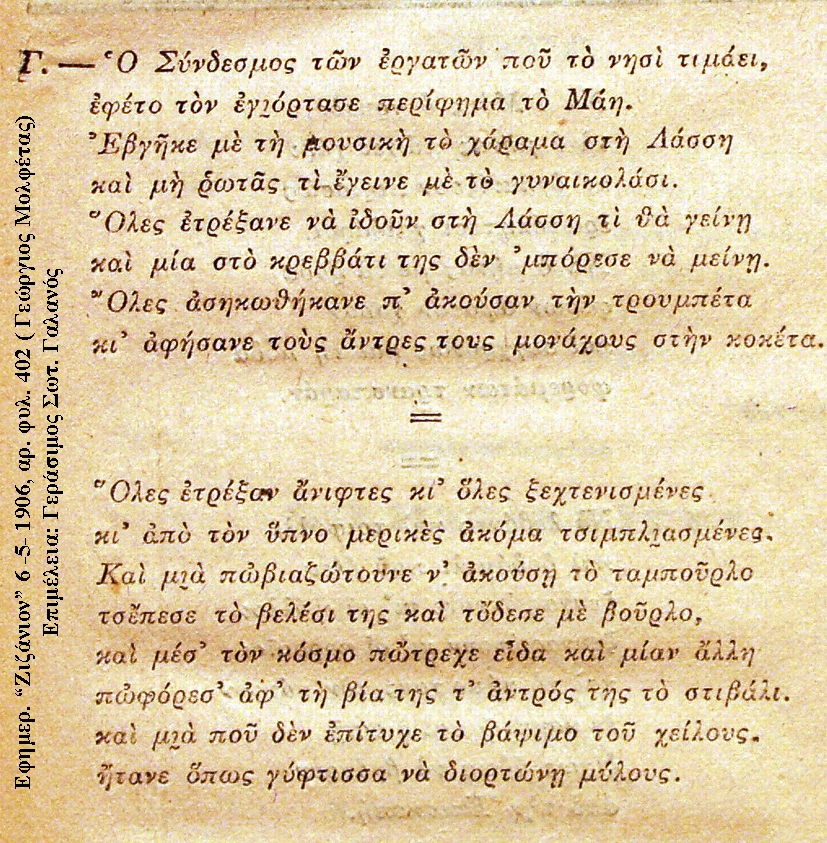 Γ. — Ὁ Σύνδεσμος τῶν ἐργατῶν ποῦ τὸ νησὶ τιμάει,
ἐφέτο τὸν ἐγιόρτασε περίφημα τὸ Μάη.
Ἐβγῆκε μὲ τὴ μουσικὴ τὸ χάραμα στὴ Λάσση
καὶ μὴ ῥωτᾶς τὶ ἔγεινε μὲ τὸ γυναικολάσι.
Ὅλες ἐτρέξανε νὰ ἰδοῦν στὴ Λάσση τὶ θὰ γείνῃ
καὶ μία στὸ κρεββάτι της δὲν ’μπόρεσε νὰ μείνῃ.
Ὅλες ἀσηκωθήκανε π’ ἀκούσαν τὴν τρουμπέτα
κι’ ἀφήσανε τοὺς ἄντρες τους μονάχους στὴν κοκέτα.
=
Ὅλες ἐτρέξαν ἄνιφτες κι’ ὅλες ξεχτενισμένες
κι’ ἀπὸ τὸν ὕπνο μερικὲς ἀκόμα τσιμπλιασμένες.
Καὶ μιὰ πὤβιαζώτουνε ν’ ἀκούσῃ τὸ ταμποῦρλο
τσἔπεσε τὸ βελέσι της καὶ τὄδεσε μὲ βοῦρλο,
καὶ μέσ’ τὸν κόσμο πὤτρεχε εἶδα καὶ μίαν ἄλλη
πὠφόρεσ’ ἀφ’ τὴ βία της τ’ ἀντρός της τὸ στιβάλι.
καὶ μιὰ ποῦ δὲν ἐπίτυχε τὸ βάψιμο τοῦ χείλους.
ἤτανε ὅπως γύφτισσα νὰ διορτώνῃ μύλους.
Εφημερ. “Ζιζάνιον” 6 -5- 1906, αρ. φυλ. 402 ( Γεώργιος Μολφέτας)
Επιμέλεια: Γεράσιμος Σωτ. Γαλανός